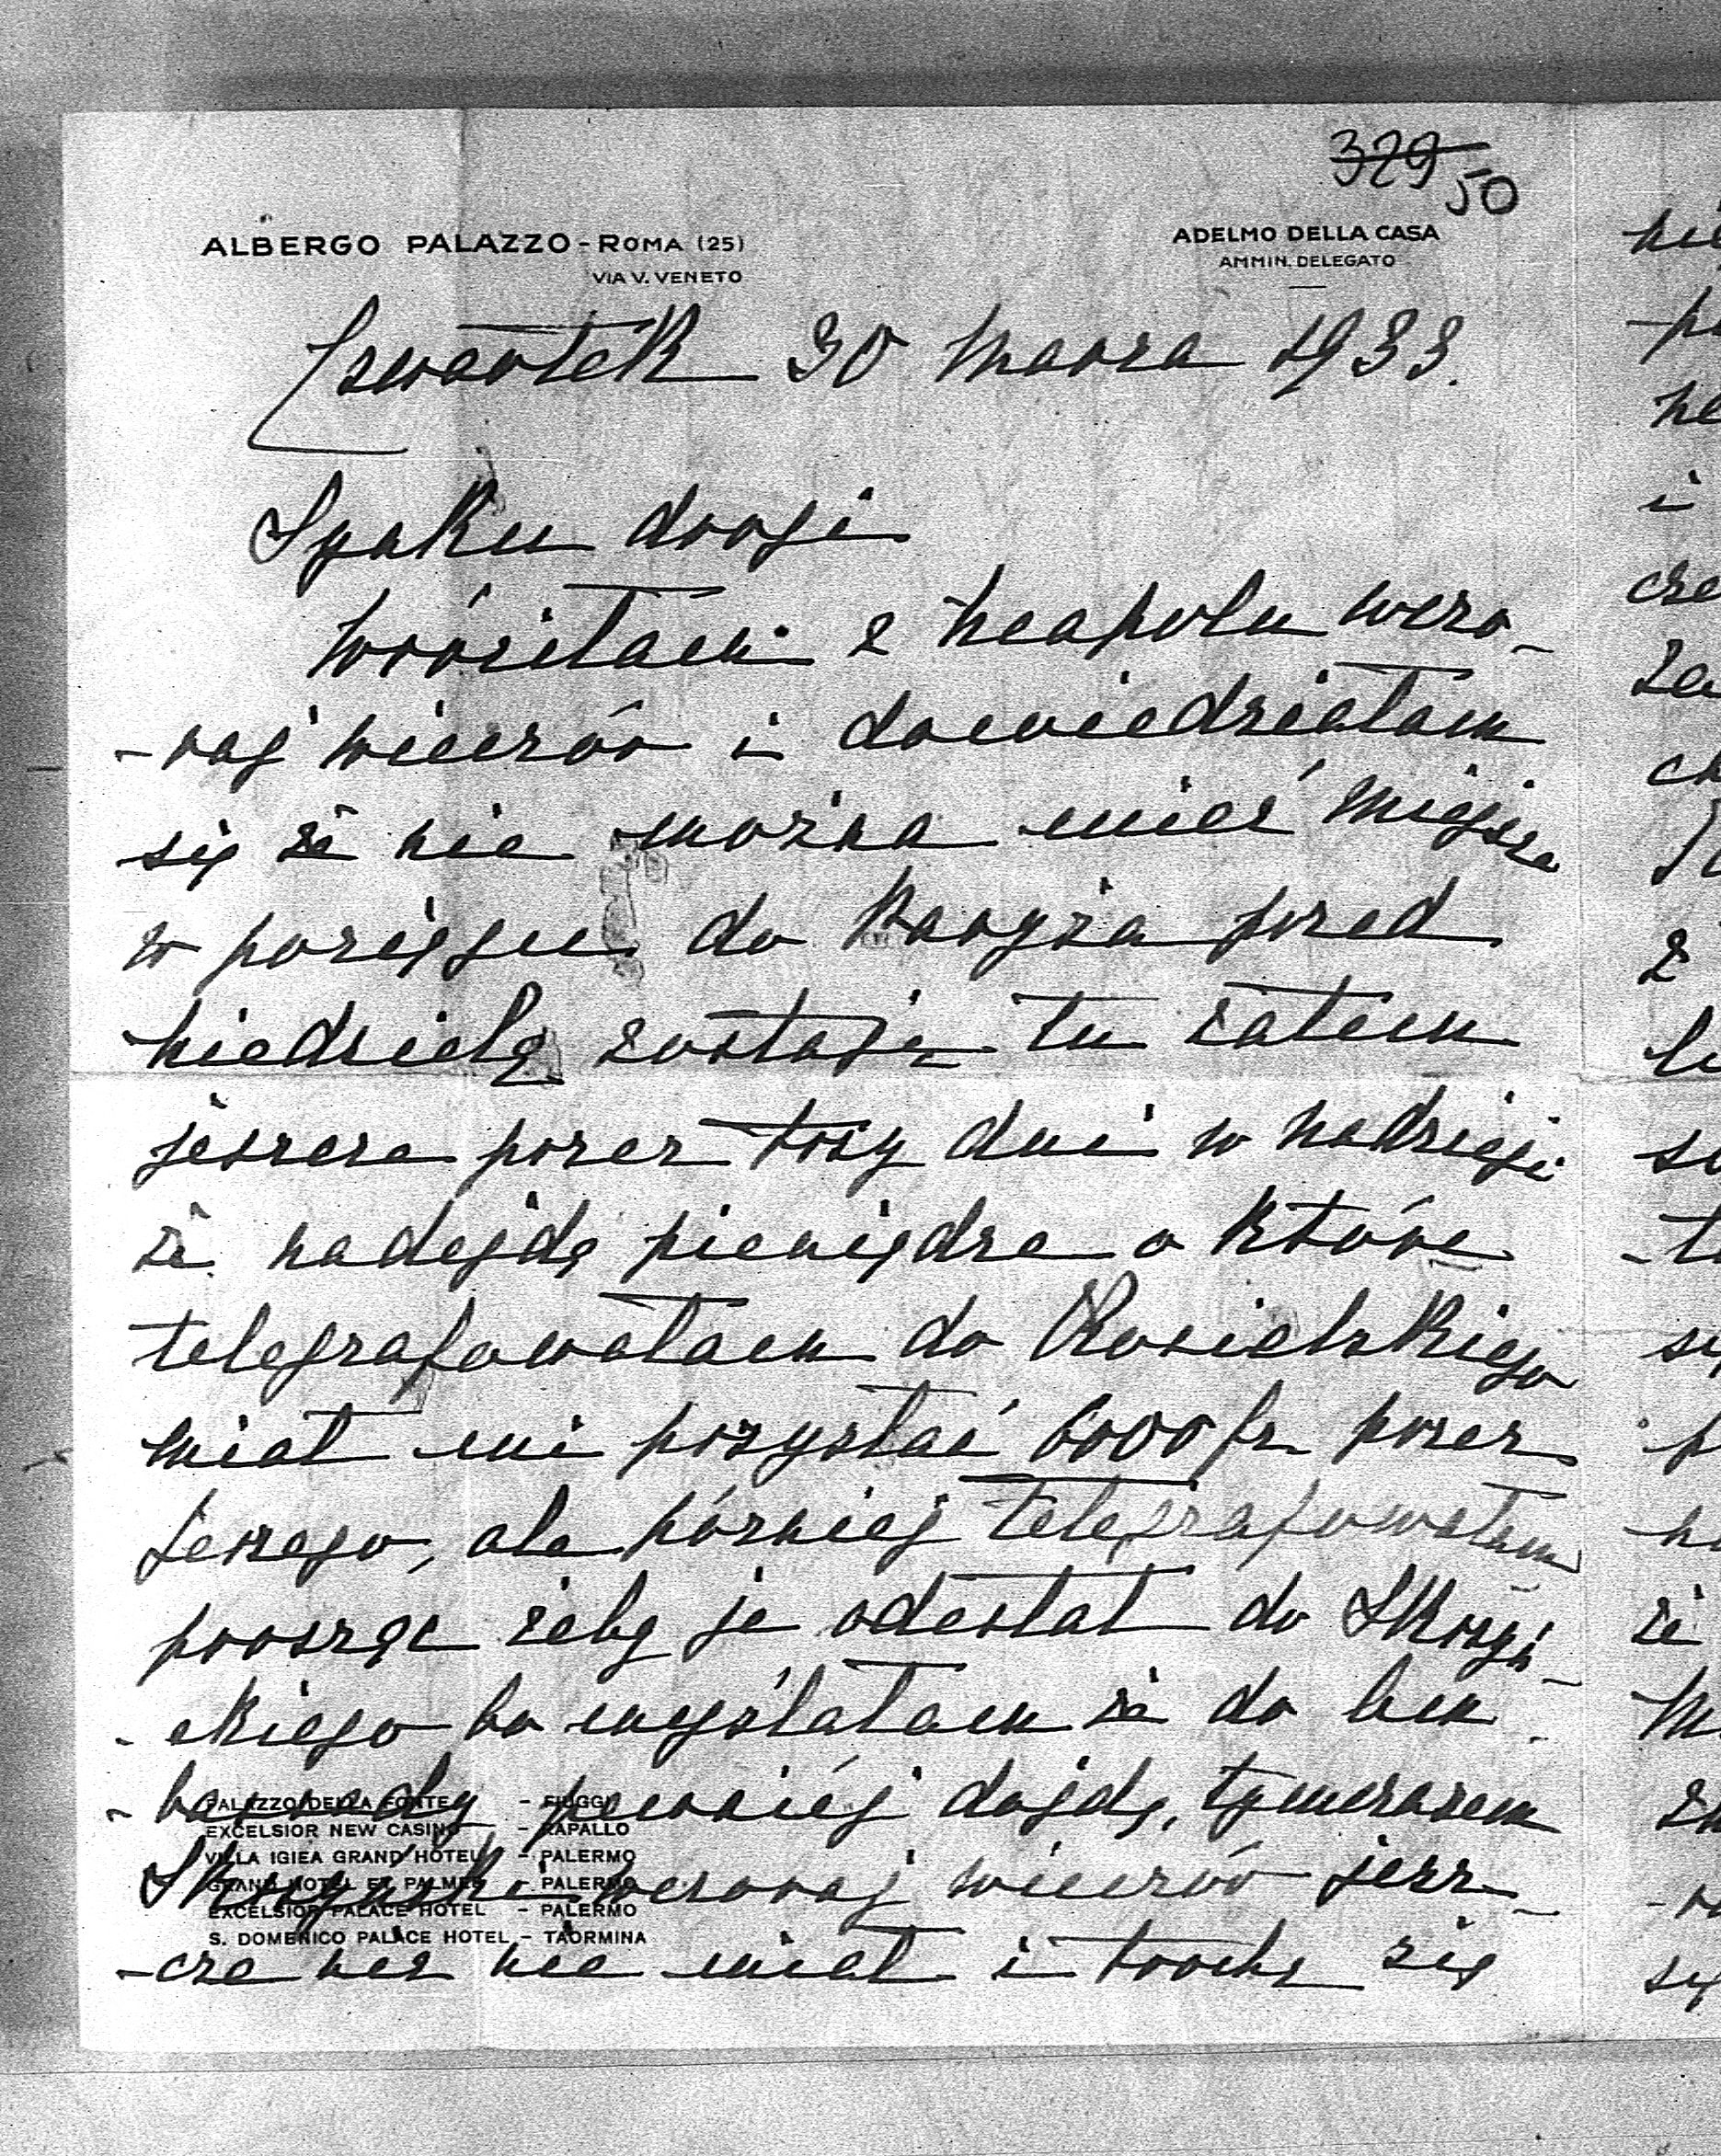 329 50
ALBERGO PALAZZO - ROMA (25)
VIA V. VENETO
ADELMO DELLA CASA
AMMIN. DELEGATO
Czwartek 30 marca 1933.
Synku drogi
Wróciłam z Neapolu wczo-
-raj wieczór i dowiedziałam
się że nie można mieć miejsca
w pociągu do Paryża przed
niedzielą zostaję tu zatem
jeszcze przez trzy dni w nadzieji
że nadejdą pieniądze o które
telegrafowałam do Kosielskiego
miał mi przysłać 6000 fr przez
Jerzego, ale później telegrafowałam
prosząc żeby je odesłał do Skrzyń-
-skiego bo myślałam że do am-
-basady prędziej dojdą, tymczasem
Skrzyński wczoraj wieczór jesz-
-cze nic nie miał i trochę się
PALAZZO DELLA FONTE - FIUGGI
EXCELSIOR NEW CASINO - RAPALLO
VILLA IGIEA GRAND HOTEL - PALERMO
GRAND HOTEL ET PALMES - PALERMO
EXCELSIOR PALACE HOTEL - PALERMO
S. DOMENICO PALACE HOTEL - TAORMINA